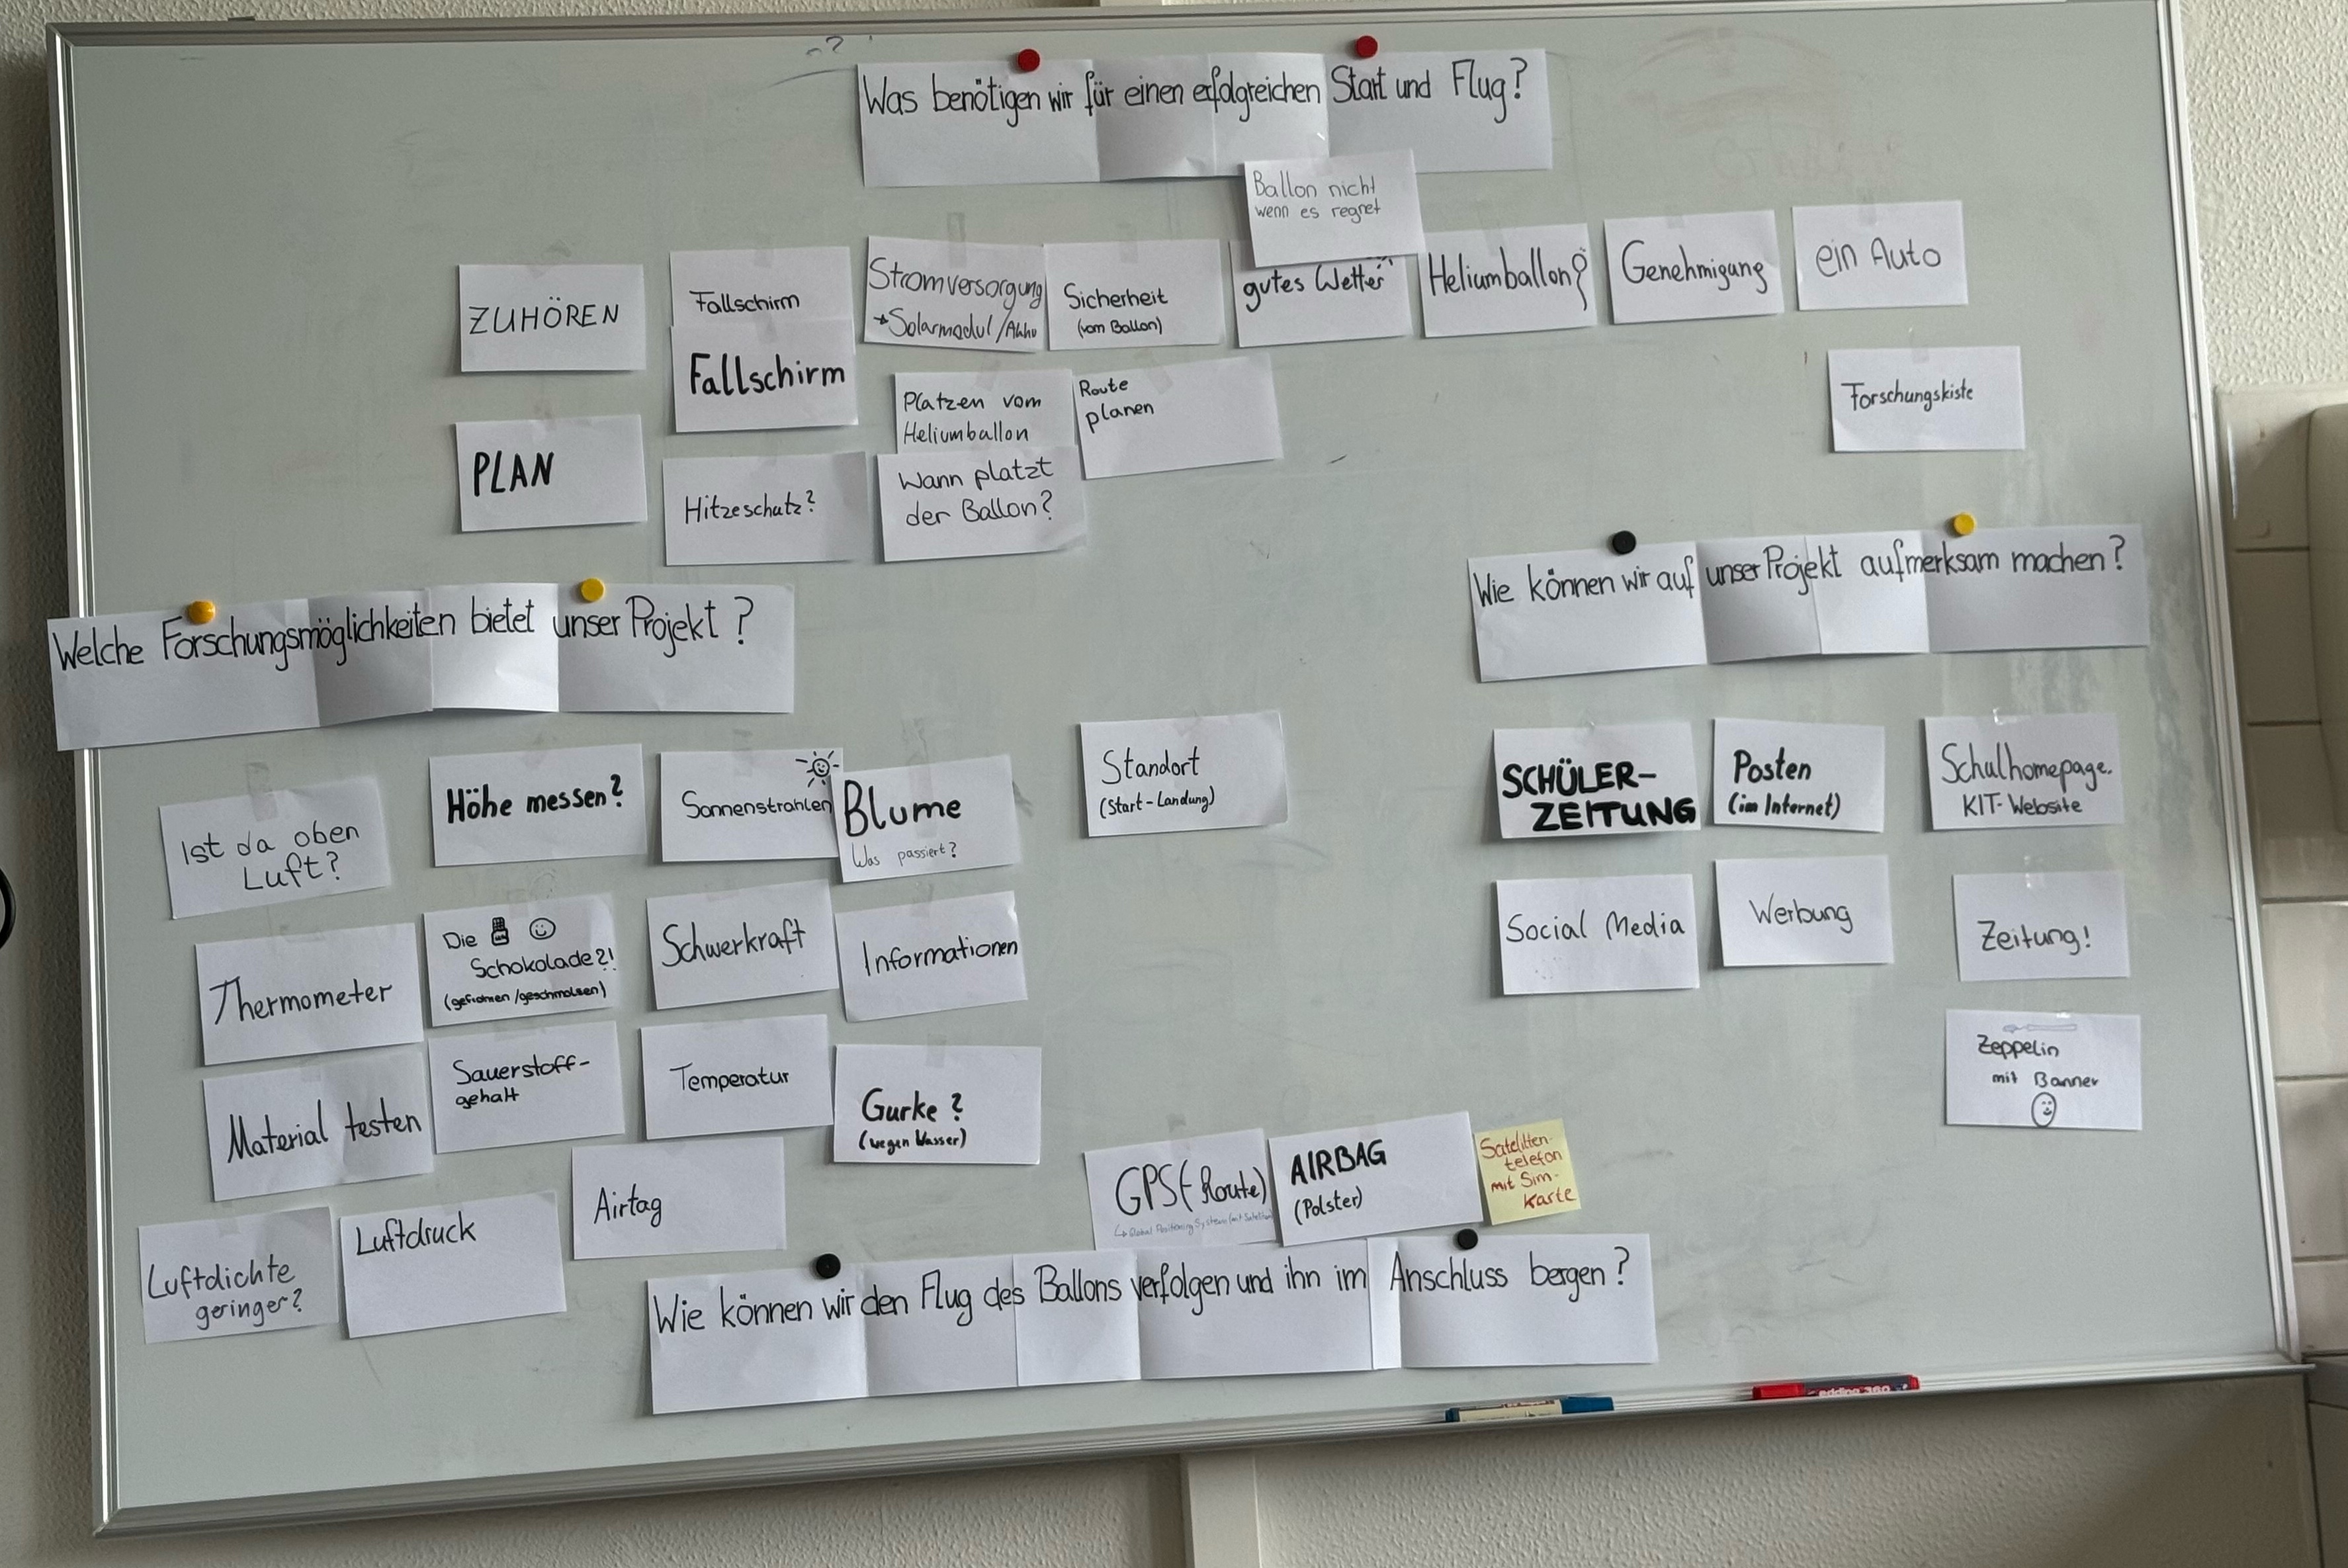 Was benötigen wir für einen erfolgreichen Start und Flug?
Ballon nicht
wenn es regnet
ZUHÖREN
Fallschirm
Stromversorgung
Solarmodul/Akku
Sicherheit
(vom Ballon)
gutes Wetter
Heliumballon?
Genehmigung
ein Auto
Fallschirm
Platzen vom
Heliumballon
Route
planen
Forschungskiste
PLAN
Hitzeschutz?
Wann platzt
der Ballon?
Welche Forschungsmöglichkeiten bietet unser Projekt?
Ist da oben
Luft?
Höhe messen?
Sonnenstrahlen
Blume
Was passiert?
Thermometer
Die
Schokolade?!
(gefroren/geschmolzen)
Schwerkraft
Informationen
Material testen
Sauerstoff-
gehalt
Temperatur
Gurke?
(wegen Wasser)
Luftdichte
geringer?
Luftdruck
Airtag
Standort
(Start-Landung)
Wie können wir auf unser Projekt aufmerksam machen?
SCHÜLER-
ZEITUNG
Posten
(im Internet)
Schulhomepage.
KIT-Website
Social Media
Werbung
Zeitung!
Zeppelin
mit Banner
GPS(-Route)
AIRBAG
(Polster)
Satelitten-
telefon
mit Sim-
Karte
Wie können wir den Flug des Ballons verfolgen und ihn im Anschluss bergen?
edding 360